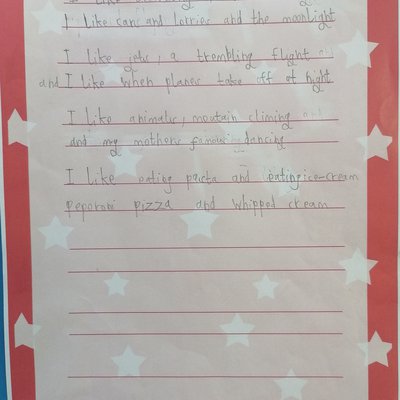 I like
I like cars and lorries and the moonlight
I like jets, a trembling flight and
and I like when planes take off at night
I like animals, moutain climing and
and my mothers famous dancing
I like eating pasta and eating ice-cream
Peporoni pizza and whipped cream